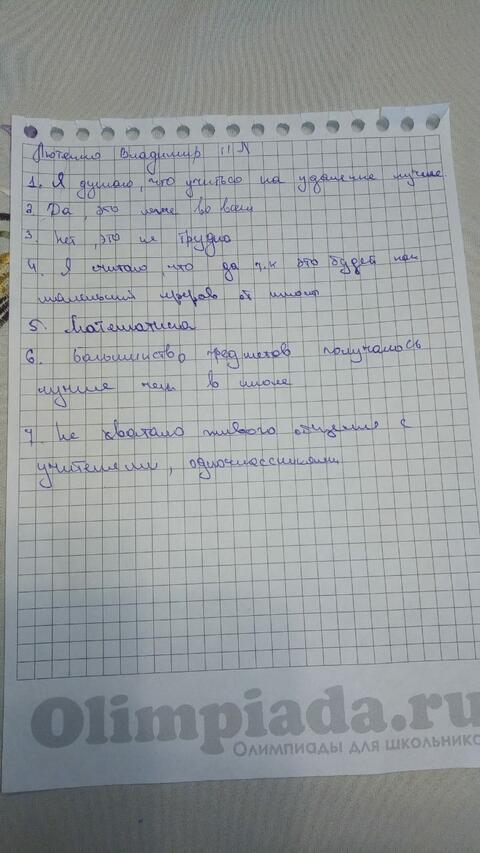 Лютенко Владимир 11 Л
1. Я думаю, что учиться на удаленке лучше
2. Да, это легче во всем
3. Нет, это не трудно
4. Я считаю, что да т.к это будей как
маленький перерыв от школы
5. Математика
6. Большинство предметов получалось
лучше чем в школе
7. Не хватало живого общения с
учителями, одноклассниками
Olimpiada.ru
Олимпиады для школьнико